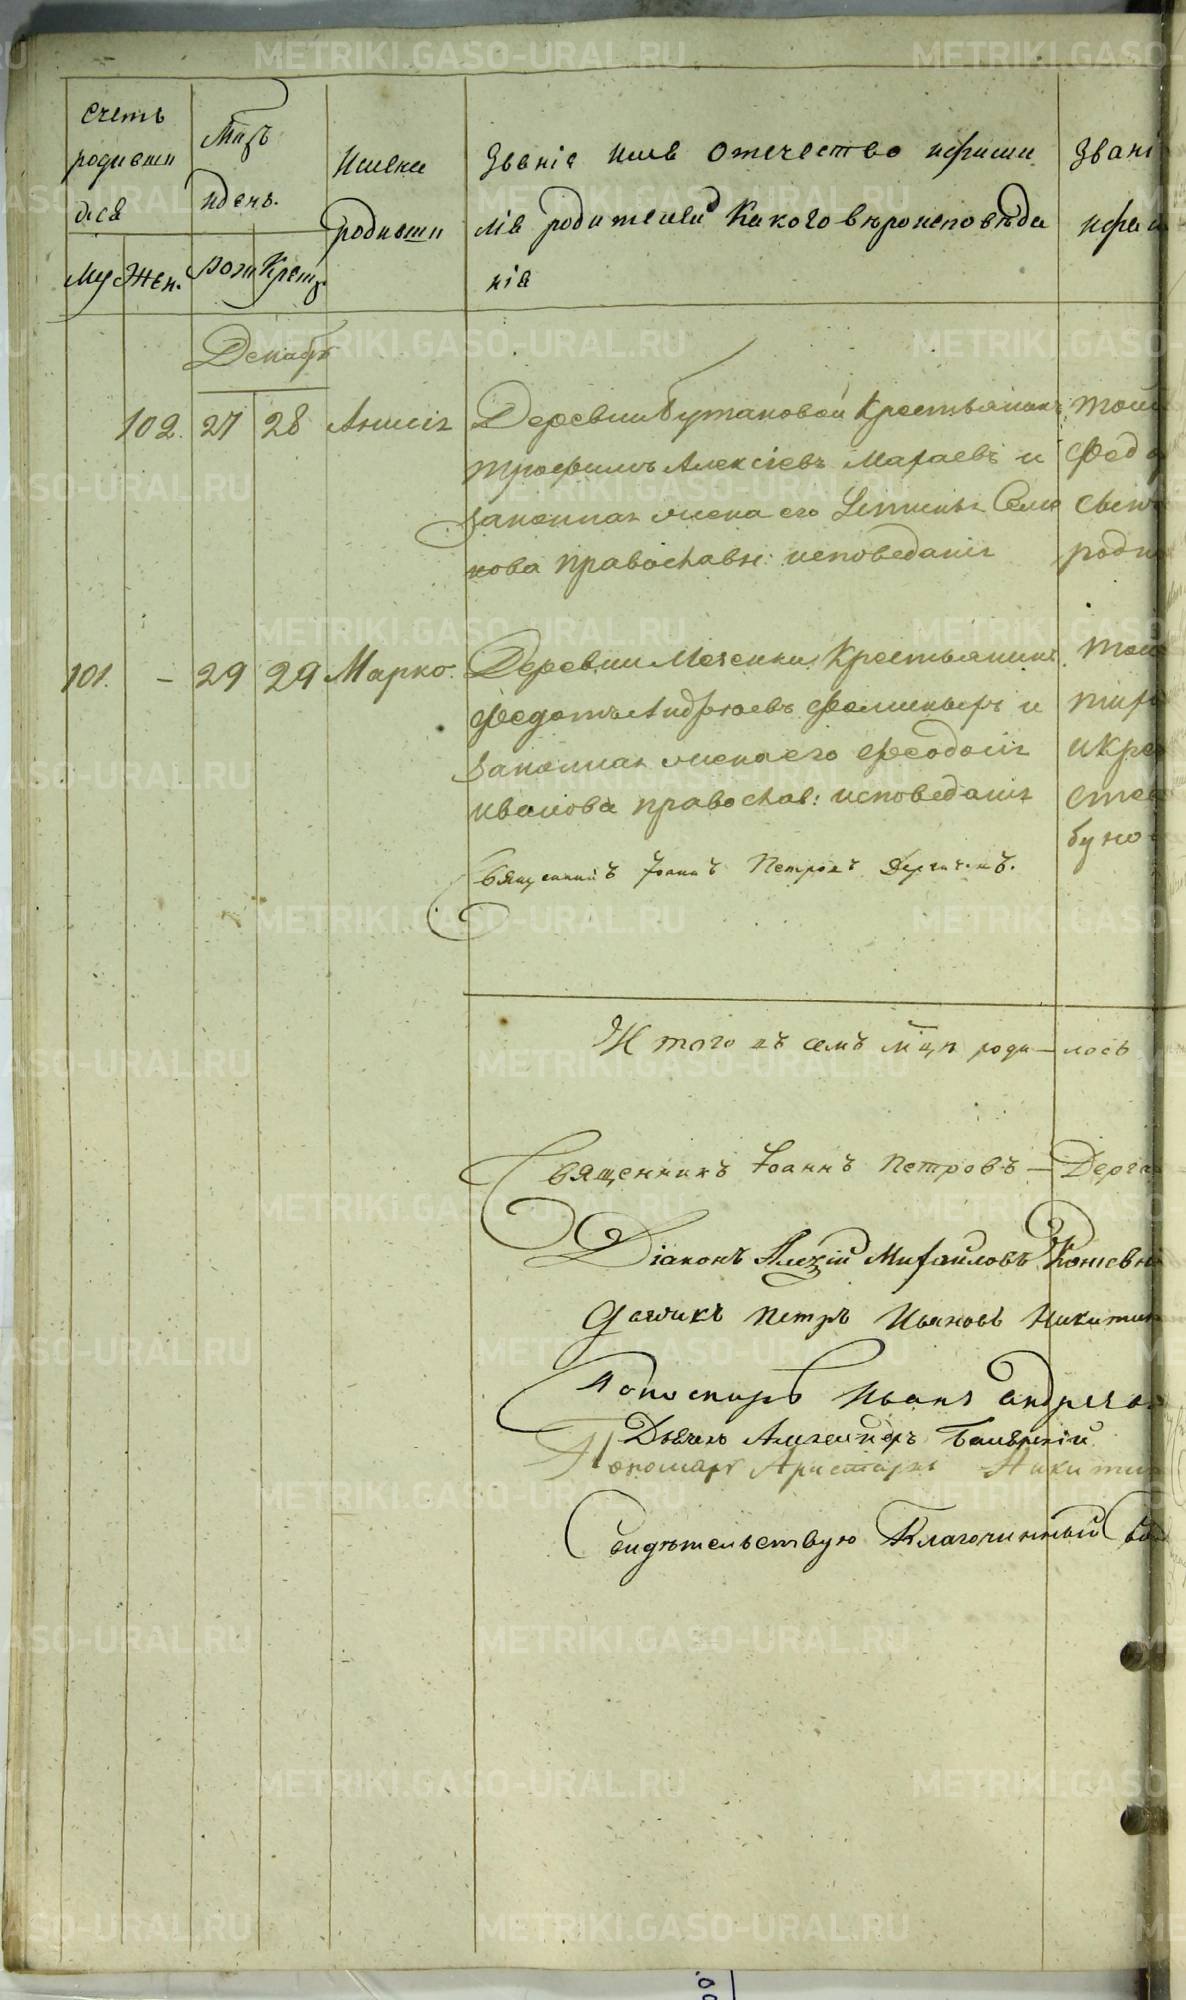 Счетъ
родивши
хся
Муж Жен.
Мцъ
и день.
рож Крещ.
Имена
родивши
Званіе имя отечество и фами
лія родителей какого вѣроисповѣда
нія
Звані
и фам
Декабь
102. 27 28 Анисія
Деревни Бутаковой Крестьянинъ
Трофимъ Алексіевъ Мараевъ и
законная жена его Семе
нова православн: исповеданія
той
Федо
родн
101. – 29 29 Марко.
Деревни Меченки Крестьянинъ
Федотъ Андреевъ и
законная жена его Феодосія
иванова православ: исповеданія
той
и кре
Священникъ Іоаннъ Петровъ Дергачевъ.
И того въ семъ мцѣ роди–лось
Священникъ Іоаннъ Петровъ – Дерга
Діаконъ Алексій Михайловъ Кожевни
Дьячикъ Петръ Ивановъ Никитин
Пономарь Иванъ андрее
Дьячекъ Александръ
Пономарь Аристархъ Никитин
Свидѣтельствую Благочинный Свя
METRIKI.GASO-URAL.RU